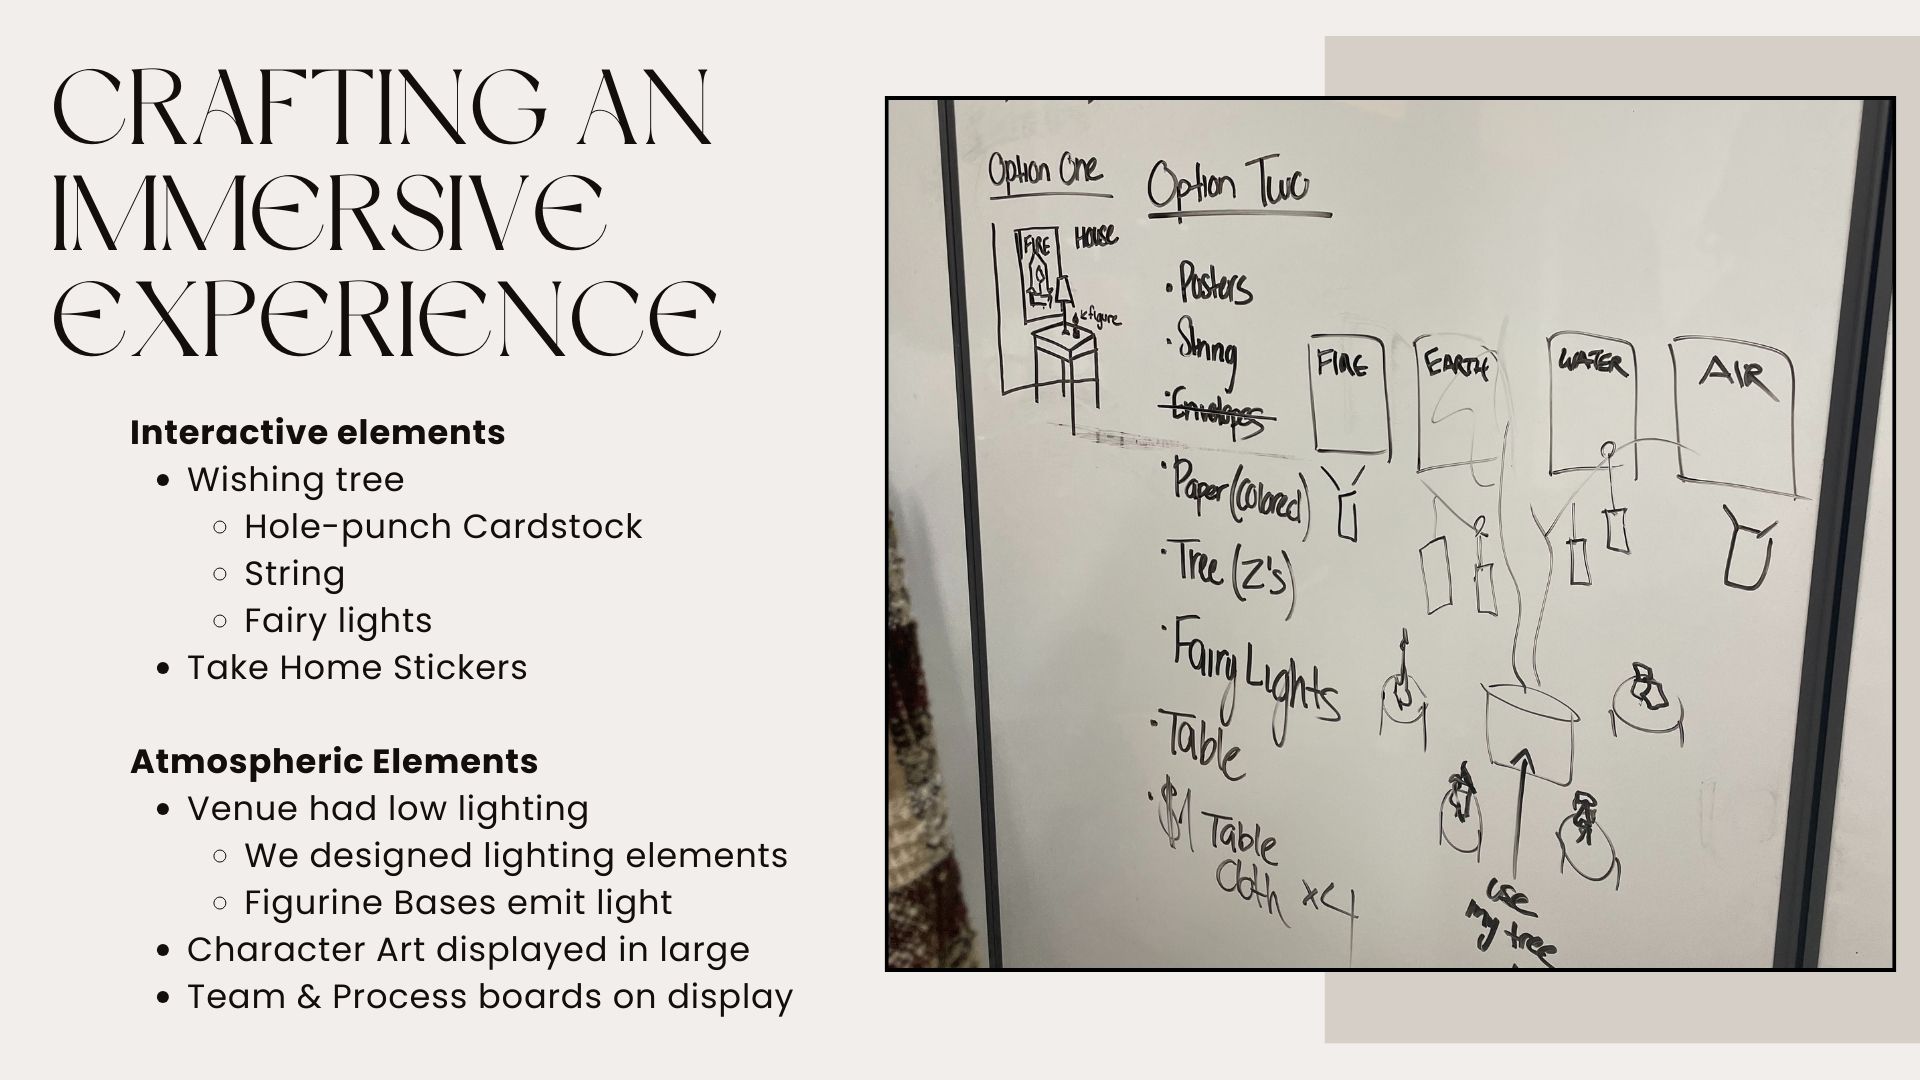 CRAFTING AN
IMMERSIVE
EXPERIENCE
Interactive elements
• Wishing tree
○ Hole-punch Cardstock
○ String
○ Fairy lights
• Take Home Stickers
Atmospheric Elements
• Venue had low lighting
○ We designed lighting elements
○ Figurine Bases emit light
• Character Art displayed in large
• Team & Process boards on display
Option One
FIRE
HOUSE
figure
Option Two
• Posters
• String
• Envelopes
• Paper (colored)
• Tree (Z's)
• Fairy Lights
• Table
• $1 Table
Cloth x4
FIRE
EARTH
WATER
AIR
use
my tree